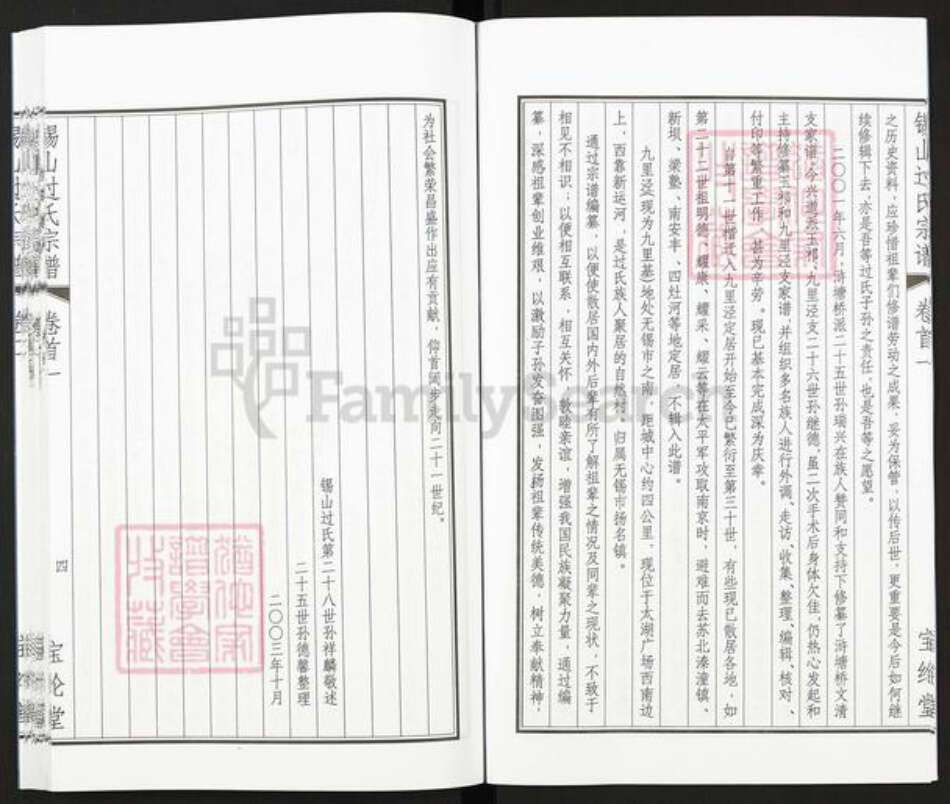 锡山过氏宗谱 卷首一
之历史资料，应珍惜祖辈们修谱劳动之成果，妥为保管，以传后世，更重要是今后如何继
续修辑下去，亦是吾等过氏子孙之责任，也是吾等之愿望。
二〇〇一年六月，浒塘桥派二十五世孙瑞兴在族人赞同和支持下修纂了浒塘桥文清
支家谱，今兴道派玉祁、九里泾支二十六世孙继德，虽二次手术后身体欠佳，仍热心发起和
主持修纂玉祁和九里泾支家谱，并组织多名族人进行外调、走访、收集、整理、编辑、核对、
付印等繁重工作，甚为辛劳。现已基本完成深为庆幸。
自第十一世楷迁入九里泾定居开始至今已繁衍至第三十世，有些现已散居各地，如
第二十二世祖明德、耀康、耀采、耀云等在太平军攻取南京时，避难而去苏北溱潼镇、
新坝、梁塾、南安丰、四灶河等地定居，不辑入此谱。
九里泾(现为九里基)地处无锡市之南，距城中心约四公里，现位于太湖广场西南边
上，西靠新运河，是过氏族人聚居的自然村，归属无锡市扬名镇。
通过宗谱编纂，以便使散居国内外后辈有所了解祖辈之情况及同辈之现状，不致于
相见不相识；以便相互联系，相互关怀，敦睦亲谊，增强我国民族凝聚力量，通过编
纂，深感祖辈创业维艰，以激励子孙发奋图强，发扬祖辈传统美德，树立奉献精神，
宝纶堂
为社会繁荣昌盛作出应有贡献，仰首阔步走向二十一世纪。
锡山过氏第二十八世孙祥麟敬述
二十五世孙德馨整理
二〇〇三年十月
锡山过氏宗谱 卷首一
四
宝纶堂
FamilySearch